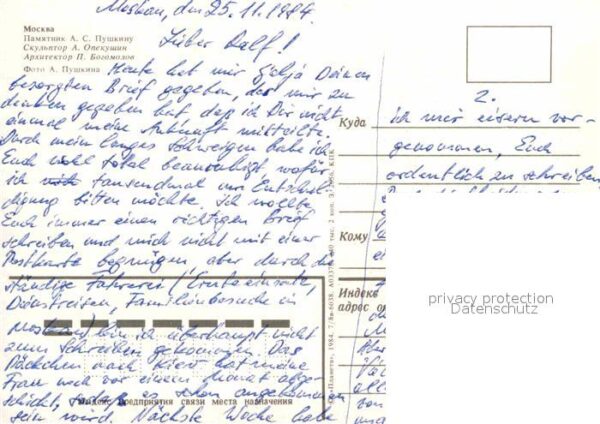 Moskau, den 25.11.1984
Москва
Памятник А. С. Пушкину
Скульптор А. Опекушин
Архитектор П. Богомолов
Фото А. Пушкина
Lieber Ralf!
Heute hat mir Galja Deinen
besorgten Brief gegeben, der mir zu
denken gegeben hat, daß ich Dir nicht
einmal meine Ankunft mitteilte.
Durch mein langes Schweigen habe ich
Euch wohl total beunruhigt, wofür
ich tausendmal um Entschul-
digung bitten möchte. Ich wollte
Euch immer einen richtigen Brief
schreiben und mich nicht mit einer
Postkarte begnügen aber durch die
ständige Fahrerei (Ernteeinsatz,
Dienstreisen, Familienbesuche in
Moskau) bin ich überhaupt nicht
zum Schreiben gekommen. Das
Päckchen nach Kiew hat meine
Frau noch vor einem Monat abge-
schickt, es schon angekommen
sein wird. Nächste Woche habe
Индекс предприятия связи места назначения
2.
Куда
ich mir eisern vor-
genommen, Euch
ordentlich zu schreiben
Кому
Индекс
адрес
privacy protection
Datenschutz